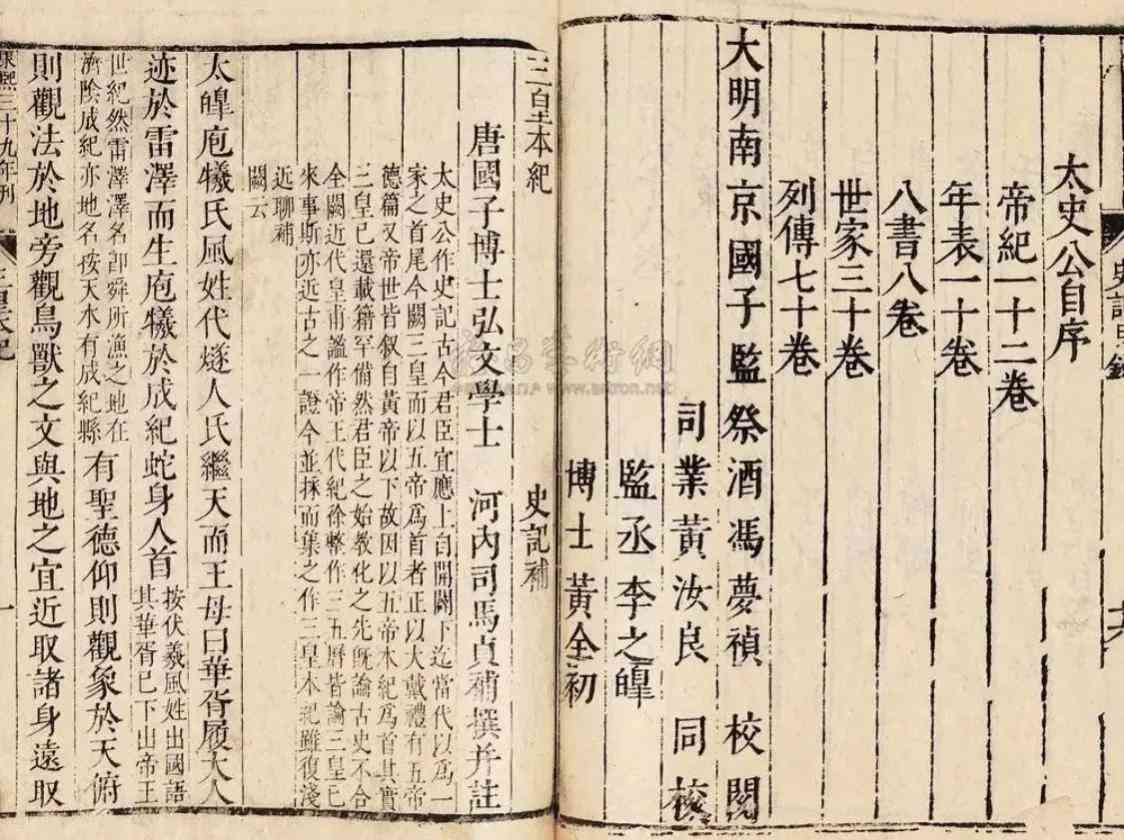 史記目錄
太史公自序
帝紀一十二卷
年表一十卷
八書八卷
世家三十卷
列傳七十卷
大明南京國子監祭酒馮夢禎 校閱
司業黃汝良 同校
監丞李之皥
博士黃全初
三皇本紀 史記補
唐國子博士弘文學士 河內司馬貞補撰并註
太史公作史記古今君臣宜應上自開闢下迄當代以為一
家之首尾今闕三皇而以五帝爲首者正以大戴禮有五帝
德篇又帝世皆叙自黃帝以下故因以五帝本紀爲首其實
三皇已還載籍罕備然君臣之始教化之先旣論古史不合
全闕近代皇甫謐作帝王代紀徐整作三五曆皆論三皇已
來事斯亦近古之一證今並採而集之作三皇本紀雖復淺
近聊補
闕云
太皥庖犧氏風姓代燧人氏繼天而王母曰華胥履大人
迹於雷澤而生庖犧於成紀蛇身人首
按伏羲風姓出國語
其華胥已下出帝王
世紀然雷澤澤名卽舜所漁之地在
濟陰成紀亦地名按天水有成紀縣
有聖德仰則觀象於天俯
則觀法於地旁觀鳥獸之文與地之宜近取諸身遠取
康熙三十九年刊
三皇本紀
一
www.artron.net